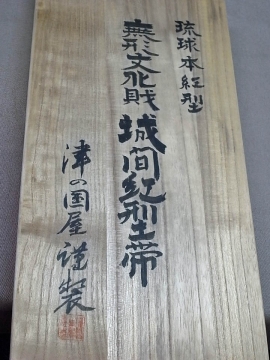 琉球本紅型
無形文化財 城間紅型帯
津の国屋謹製